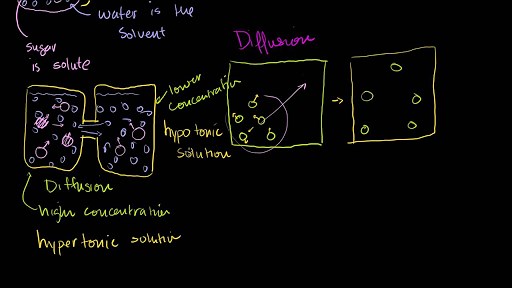 water is the
Solvent
sugar
is solute
Diffusion
lower
concentration
hypotonic
solution
Diffusion
high concentration
hypertonic solution